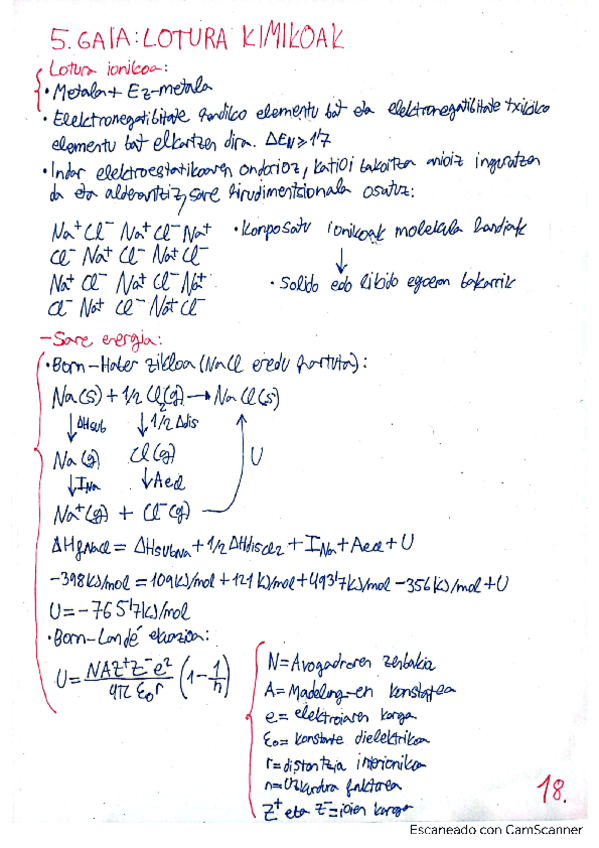 5. GAIA: LOTURA KIMIKOAK
Lotura ionikoa:
• Metala + Ez-metala
• Elektronegatibitate handiko elementu bat eta elektronegatibitate txikiko
elementu bat elkartzen dira. ΔEN ≥ 1'7
• Indar elektroestatikoaren ondorioz, katioi bakoitza anioiz inguratzen
da eta alderantziz, sare hirudimentsionala osatuz:
Na⁺ Cl⁻ Na⁺ Cl⁻ Na⁺ • Konposatu ionikoak molekula handiak
Cl⁻ Na⁺ Cl⁻ Na⁺ Cl⁻ ↓
Na⁺ Cl⁻ Na⁺ Cl⁻ Na⁺ • Solido edo likido egoeran bakarrik
Cl⁻ Na⁺ Cl⁻ Na⁺ Cl⁻
- Sare energia:
• Born-Haber zikloa (NaCl eredu hartuta):
Na(s) + 1/2 Cl₂(g) → NaCl(s)
↓ΔHsub ↓1/2 Δdis
Na(g) Cl(g) U
↓INa ↓AeCl
Na⁺(g) + Cl⁻(g)
ΔHfNaCl = ΔHsubNa + 1/2 ΔHdisCl₂ + INa + AeCl + U
-398 kJ/mol = 109 kJ/mol + 121 kJ/mol + 493'7 kJ/mol - 356 kJ/mol + U
U = -765'7 kJ/mol
• Born-Landé ekuazioa:
U = NAZ⁺Z⁻e²/4π ε₀ r (1 - 1/n)
N = Avogadroren zenbakia
A = Madelung-en konstantea
e = elektroiaren karga
ε₀ = konstante dielektrikoa
r = distantzia interionikoa
n = Uzkurdura faktorea
Z⁺ eta Z⁻ = ioien karga
18.
Escaneado con CamScanner